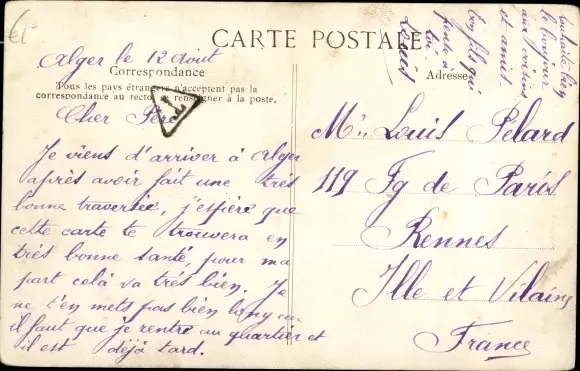 CARTE POSTALE
Correspondance
Tous les pays étrangers n'acceptent pas la
correspondance au recto. renseigner à la poste.
Adresse
Alger le 12 Août
Cher Père
Je viens d'arriver à Alger
après avoir fait une très
bonne traversée, j'espère que
cette carte te trouvera en
très bonne santé, pour ma
part celà va très bien. Je
ne t'en mets pas bien long car
il faut que je rentre au quartier et
il est déjà tard.
souhaite bien
le bonjour
aux voisins
et amis
ton fils qui
pense à
toi
Louis
T
Mr Louis Pelard
119 Fg de Paris
Rennes
Ille et Vilaine
France